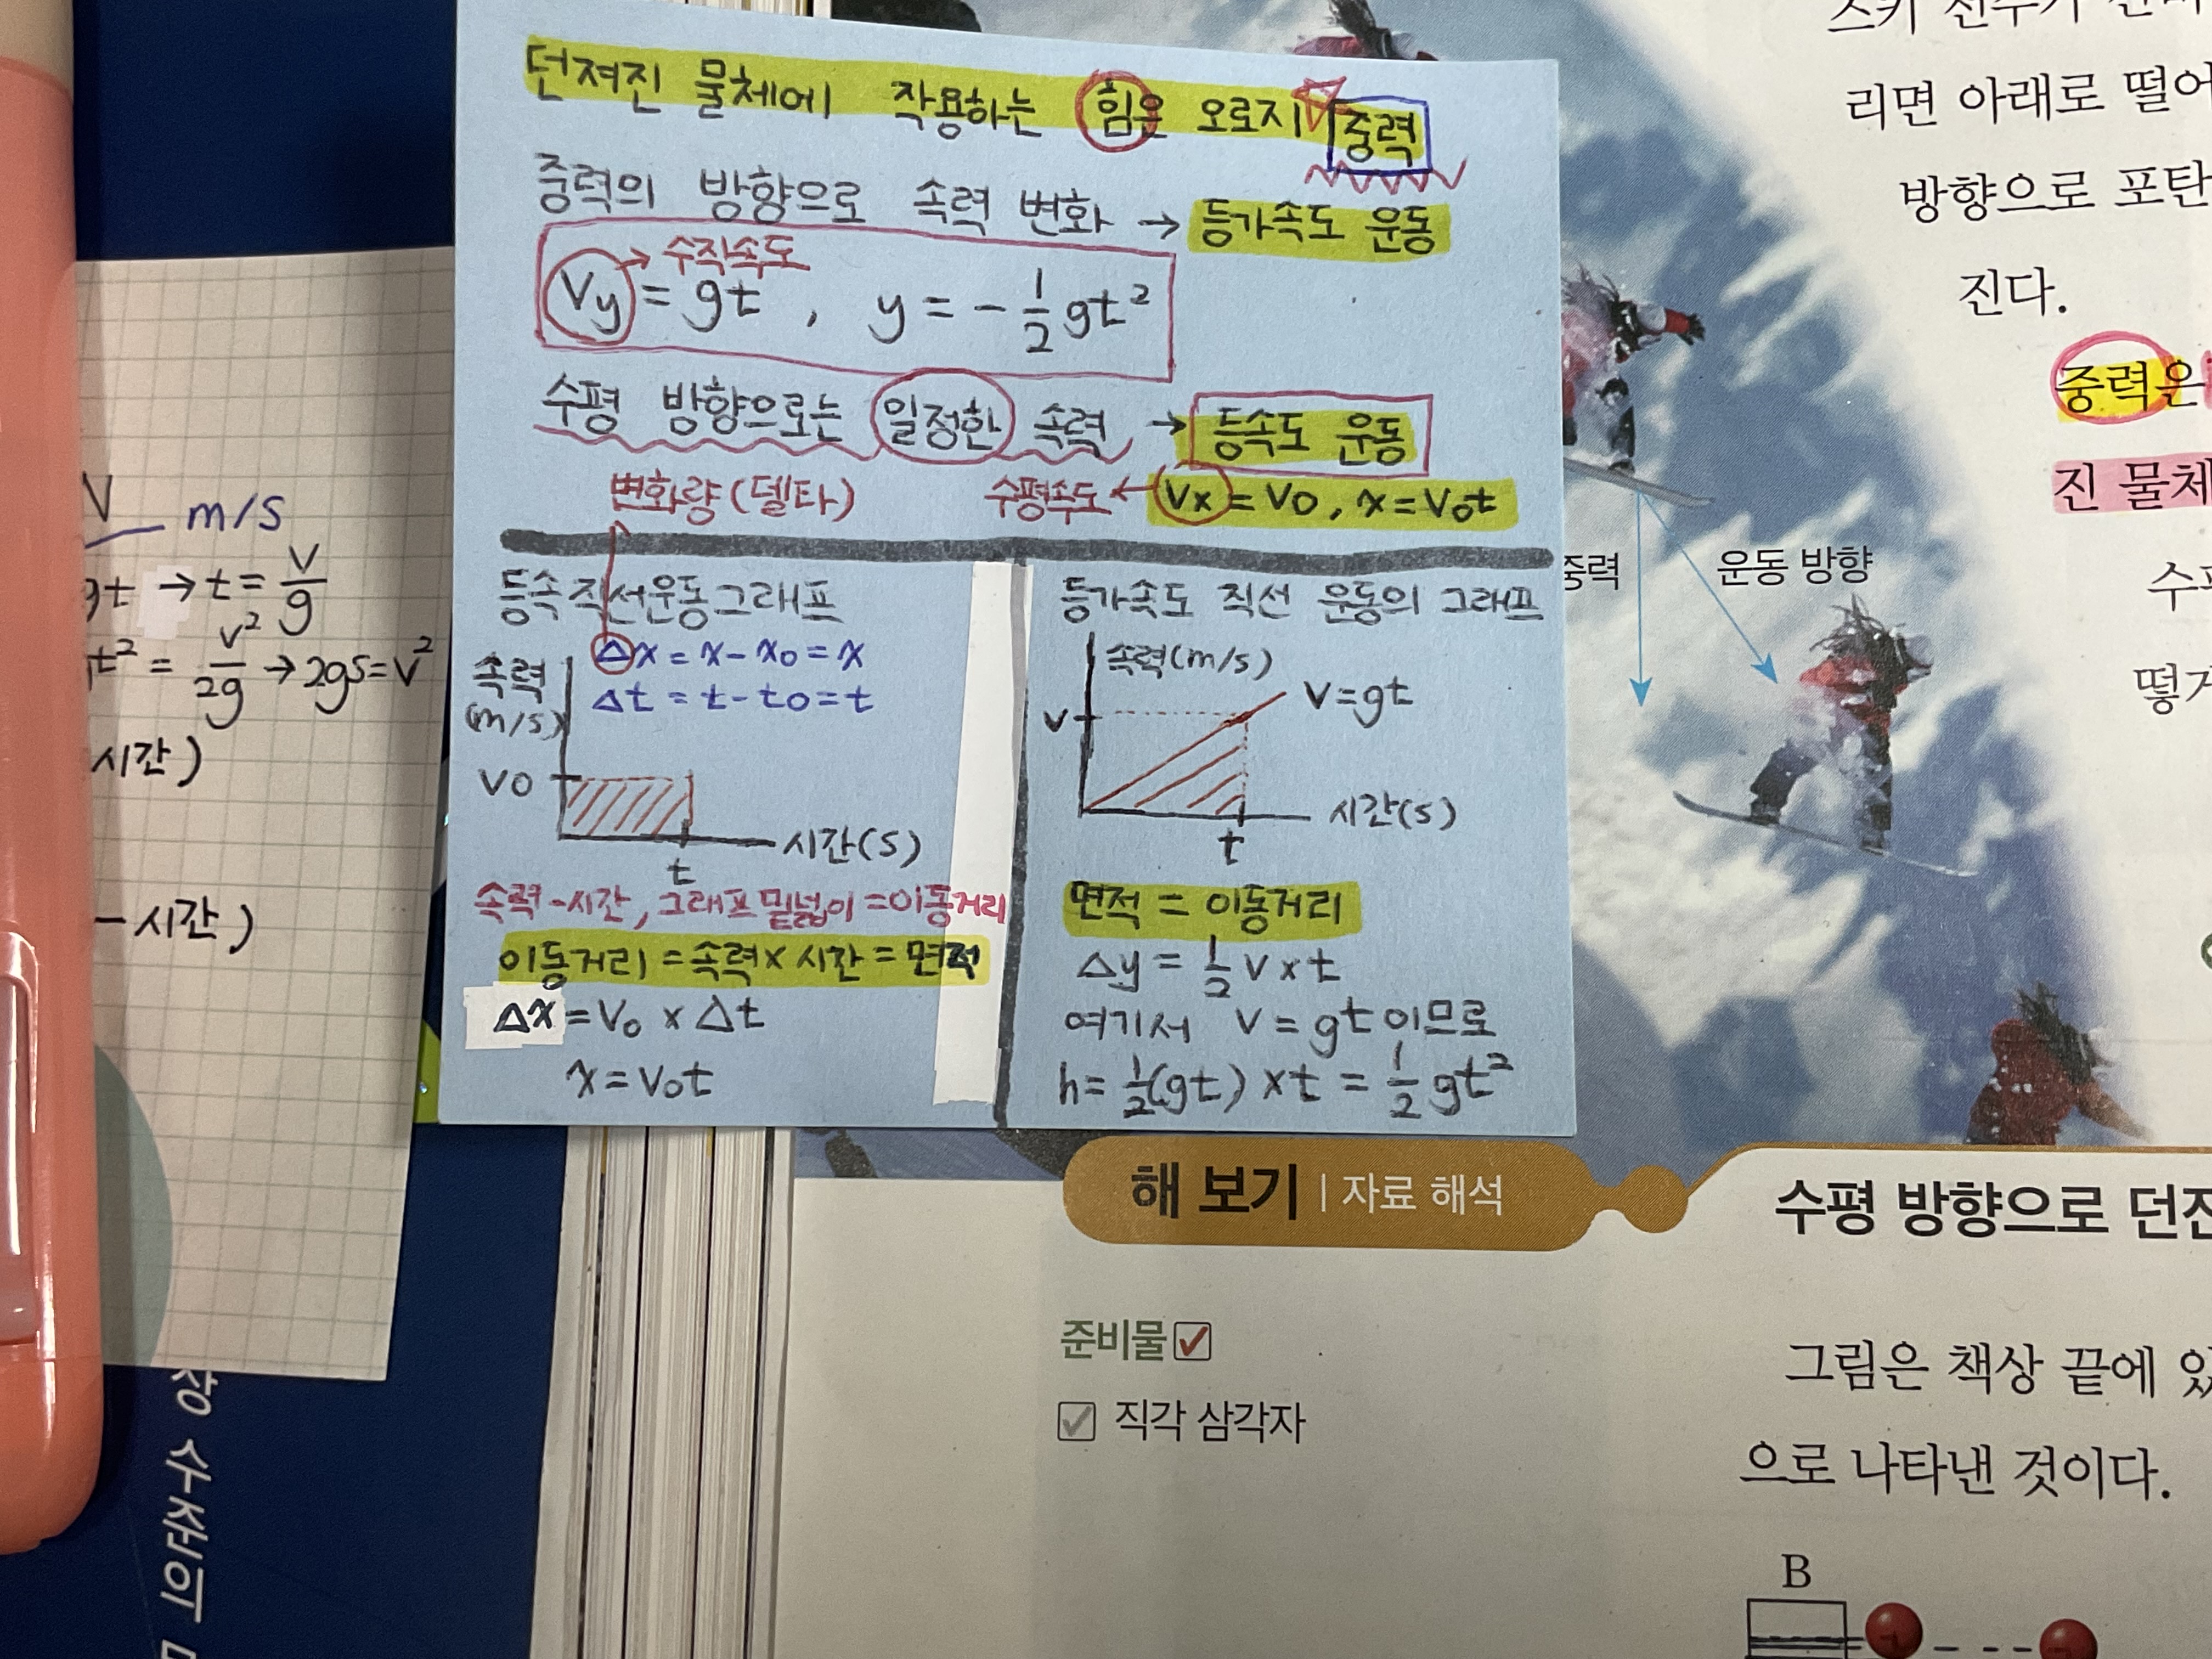 던져진 물체에 작용하는 힘은 오로지 중력
중력의 방향으로 속력 변화 → 등가속도 운동
→ 수직속도
Vy = gt , y = - 1/2 gt²
수평 방향으로는 일정한 속력 → 등속도 운동
변화량(델타) 수평속도 ← Vx = V0, x = V0t
등속직선운동그래프
Δx = x - x0 = x
Δt = t - t0 = t
속력
(m/s)
V0
시간(s)
t
속력-시간, 그래프 밑넓이 = 이동거리
이동거리 = 속력 x 시간 = 면적
Δx = V0 x Δt
x = V0t
등가속도 직선 운동의 그래프
속력(m/s)
V=gt
V
시간(s)
t
면적 = 이동거리
Δy = 1/2 v x t
여기서 V = gt 이므로
h = 1/2(gt) x t = 1/2 gt²
V
m/s
gt → t = V/g
t² = V²/2g → 2gs = V²
시간)
-시간)
수준의
스키 선수가
리면 아래로 떨어
방향으로 포탄
진다.
중력은
진 물체
중력
운동 방향
해 보기 | 자료 해석
수평 방향으로 던진
준비물
직각 삼각자
그림은 책상 끝에 있
으로 나타낸 것이다.
B